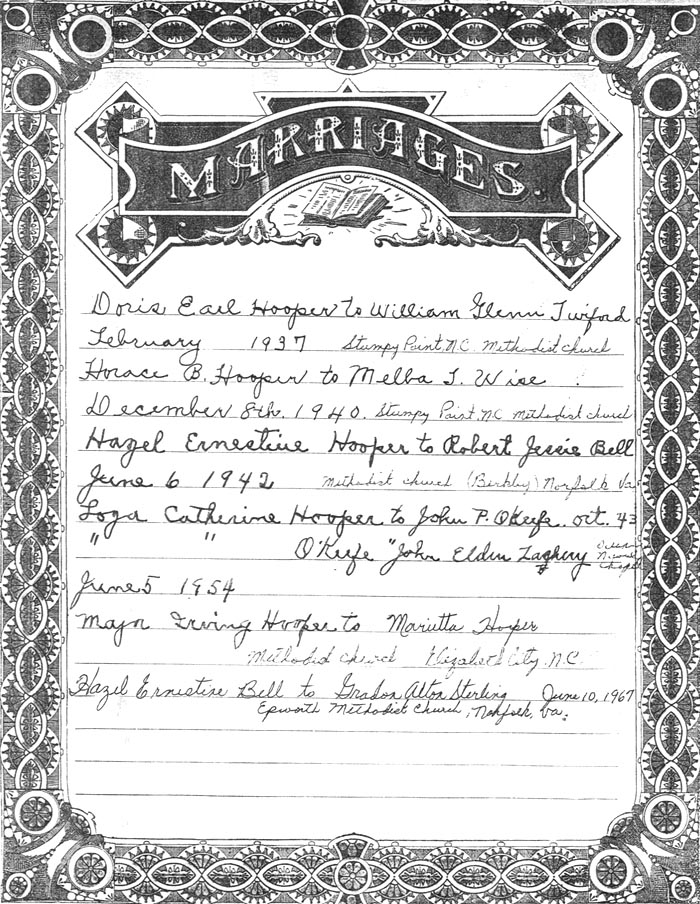 MARRIAGES.
Doris Earl Hooper to William Glenn Twiford
February 1937 Stumpy Point, N.C. Methodist church
Horace B. Hooper to Melba T. Wise
December 8th. 1940. Stumpy Point, N.C. Methodist church
Hazel Ernestine Hooper to Robert Jessie Bell
June 6 1942 Methodist church (Berkley) Norfolk Va
Loga Catherine Hooper to John P. O'Keefe. oct. 43
" " O'Keefe "John Eldin
June 5 1954
Major Irving Hooper to Marietta Hooper
Methodist church Elizabeth City, N.C.
Hazel Ernestine Bell to Gradon Alton Sterling June 10, 1967
Epworth Methodist Church, Norfolk, Va.